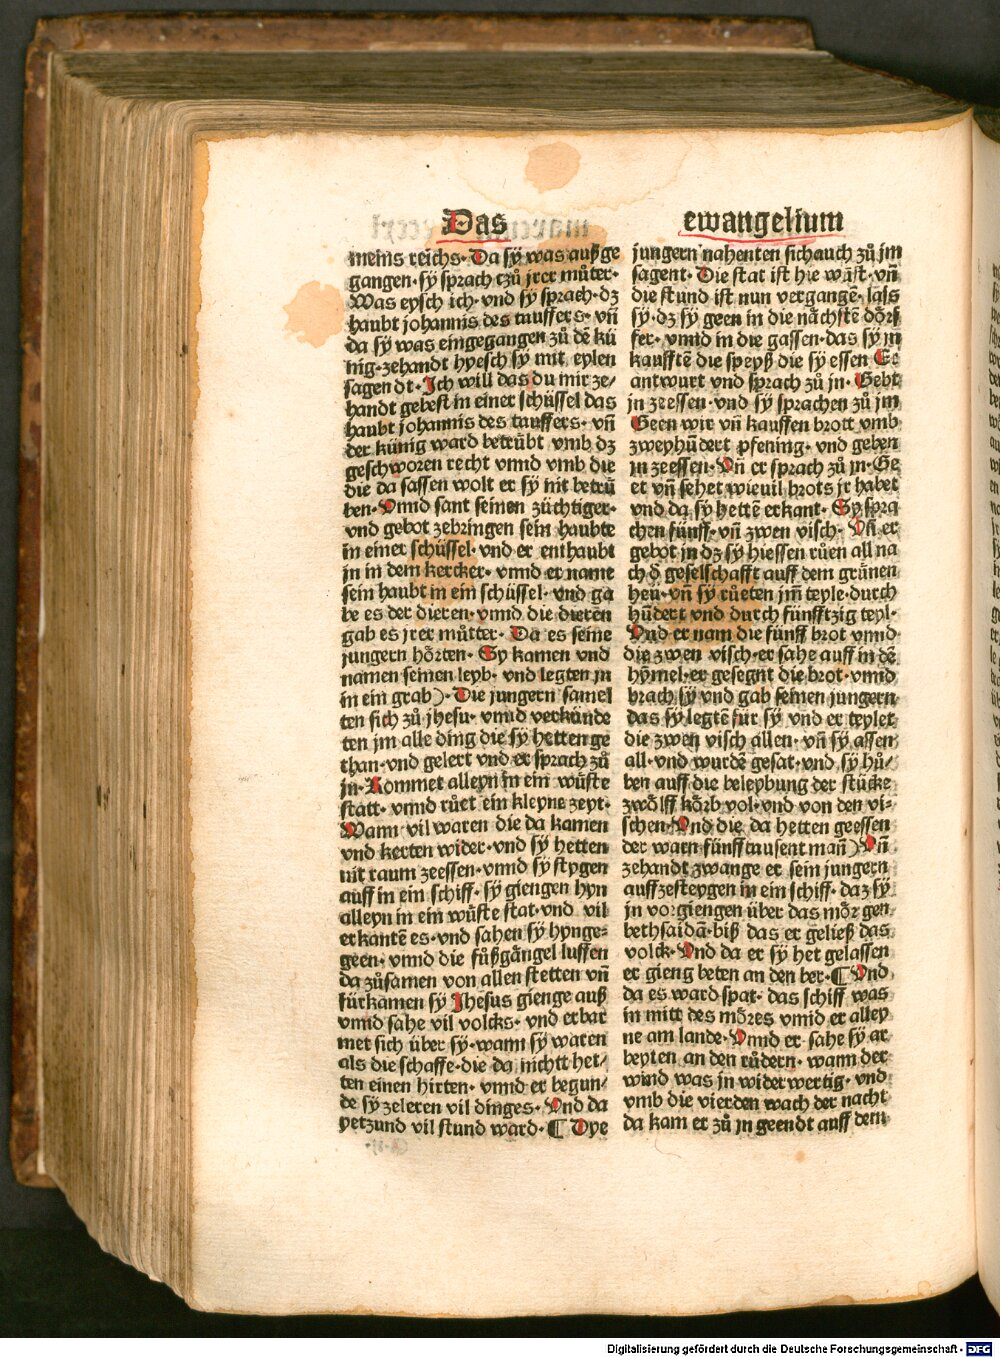 Das ewangelium
meins reichs· Da sÿ was außge
gangen· sÿ sprach tzů jrer můter·
Was eysch ich· vnd sÿ sprach· dz
haubt johannis des tauffers· vñ
da sÿ was eingegangen zů dē kü
nig· zehandt hyesch sÿ mit eylen
sagendt· Ich will das du mir ze/
handt gebest in einer schüssel das
haubt johannis des tauffers· vñ
der künig ward betrůbt vmb dz
geschworen recht vnnd vmb die
die da sassen wolt er sÿ nit betrů
ben· Vnnd sant seinen züchtiger·
vnd gebot zebringen sein haubte
in einer schüssel· vnd er enthaubt
jn in dem kercker· vnnd er name
sein haubt in ein schüssel· vnd ga
be es der dieren· vnnd die dieren
gab es jrer můtter· Da es seine
jungern hörten· Sy kamen vnd
namen seinen leyb· vnd legten jn
in ein grab)· Die jungern samel
ten sich zů jhesu· vnnd verkünde
ten jm alle ding die sÿ hetten ge
than· vnd gelert vnd er sprach zů
jn· Kommet alleyn in ein wůste
statt· vnnd růet ein kleyne zeyt·
Wann vil waren die da kamen
vnd kerten wider· vnd sÿ hetten
nit raum zeessen· vnnd sÿ stygen
auff in ein schiff· sÿ giengen hyn
alleyn in ein wůste stat· vnd vil
erkantē es· vnd sahen sÿ hynge=
geen· vnnd die fůßgängel luffen
da zůsamen von allen stetten vñ
fürkamen sÿ Jhesus gienge auß
vnnd sahe vil volcks· vnd erbar
met sich über sÿ· wann sÿ waren
als die schaffe· die da nichtt het/
ten einen hirten· vnnd er begun/
de sÿ zeleren vil dinges· Vnd da
yetzund vil stund ward· ¶ Dye
jungern nahenten sich auch zů jm
sagent· Die stat ist hie wůst· vñ
die stund ist nun vergangē· lass
sÿ· dz sÿ geen in die nächstē dörf
fer· vnnd in die gassen· das sÿ jn
kaufftē die speyß die sÿ essen Er
antwurt vnd sprach zů jn· Gebt
jn zeessen· vnd sÿ sprachen zů jm
Geen wir vñ kauffen brott vmb
zweyhūdert pfening· vnd geben
jn zeessen· Vñ er sprach zů jn· Ge
et vñ sehet wieuil brots jr habet
vnd da sÿ hettē erkant· Sy spra
chen fünff· vñ zwen visch· Vñ er
gebot jn dz sÿ hiessen růen all na
ch d̕ geselschafft auff dem grůnen
heü· vñ sÿ růeten jm̄ teyle· durch
hūdert vnd durch fünfftzig teyl·
Vnd er nam die fünff brot vnnd
die zwen visch· er sahe auff in dē
hȳmel· er gesegnt die brot· vnnd
brach sÿ vnd gab seinen jungern
das sÿ legtē für sÿ vnd er teylet
die zwen visch allen· vñ sÿ assen
all· vnd wurdē gesat· vnd sÿ hů/
ben auff die beleybung der stücke
zwölff körb vol· vnd von den vi-
schen· Vnd die da hetten geessen
der warn fünfftausent mañ) Vñ
zehandt zwange er sein jungern
auffzesteygen in ein schiff· daz sÿ
jn vorgiengen über das mör gen
bethsaidā· biß das er geließ das
volck· Vnd da er sÿ het gelassen
er gieng beten an den ber· ¶ Vnd
da es ward spat· das schiff was
in mitt des möres vnnd er alley
ne am lande· Vnnd er sahe sÿ ar
beyten an den růdern· wann der
wind was in widerwertig· vnd
vmb die vierden wach der nacht
da kam er zů jn geendt auff dem
Digitalisierung gefördert durch die Deutsche Forschungsgemeinschaft - DFG